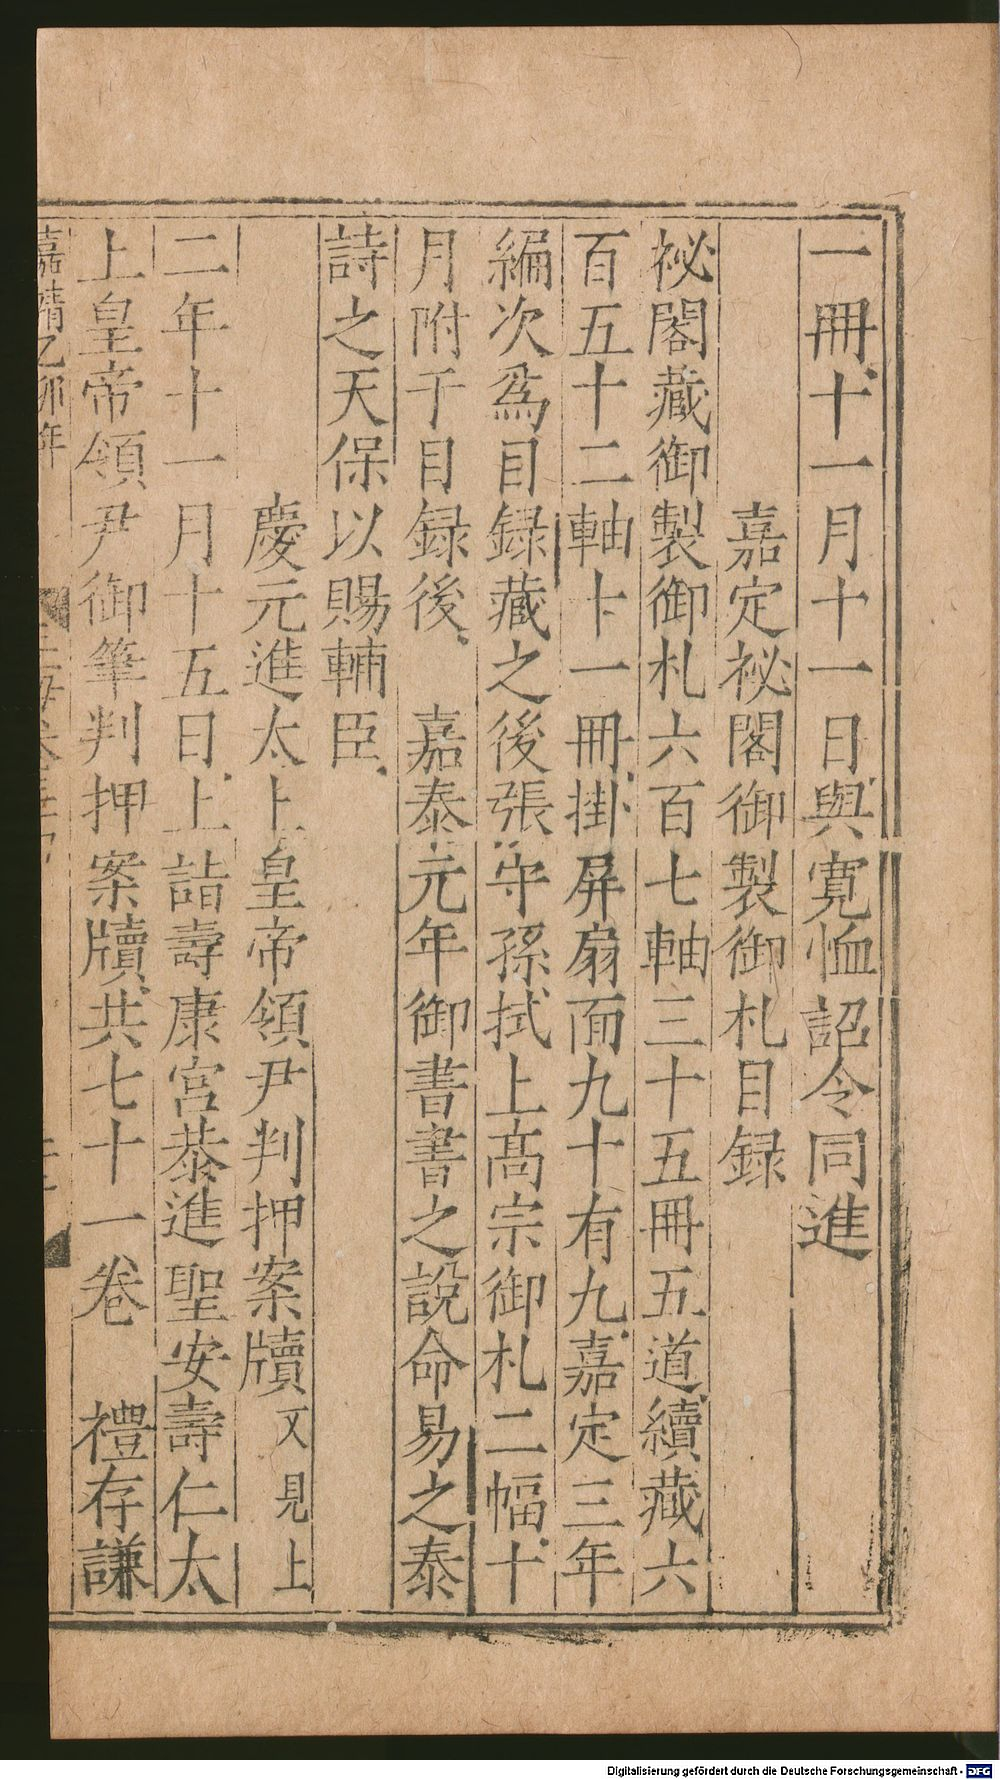 一冊十一月十一日與寛恤詔令同進
嘉定祕閣御製御札目録
祕閣藏御製御札六百七軸三十五冊五道續藏六
百五十二軸十一冊掛屏扇面九十有九嘉定三年
編次爲目録藏之後張守孫拭上髙宗御札二幅十
月附于目録後 嘉泰元年御書書之說命易之泰
詩之天保以賜輔臣
慶元進太上皇帝領尹判押案牘又見上
二年十一月十五日上詣壽康宮恭進聖安壽仁太
上皇帝領尹御筆判押案牘共七十一卷 禮存謙
嘉靖乙卯年
Digitalisierung gefördert durch die Deutsche Forschungsgemeinschaft - DFG